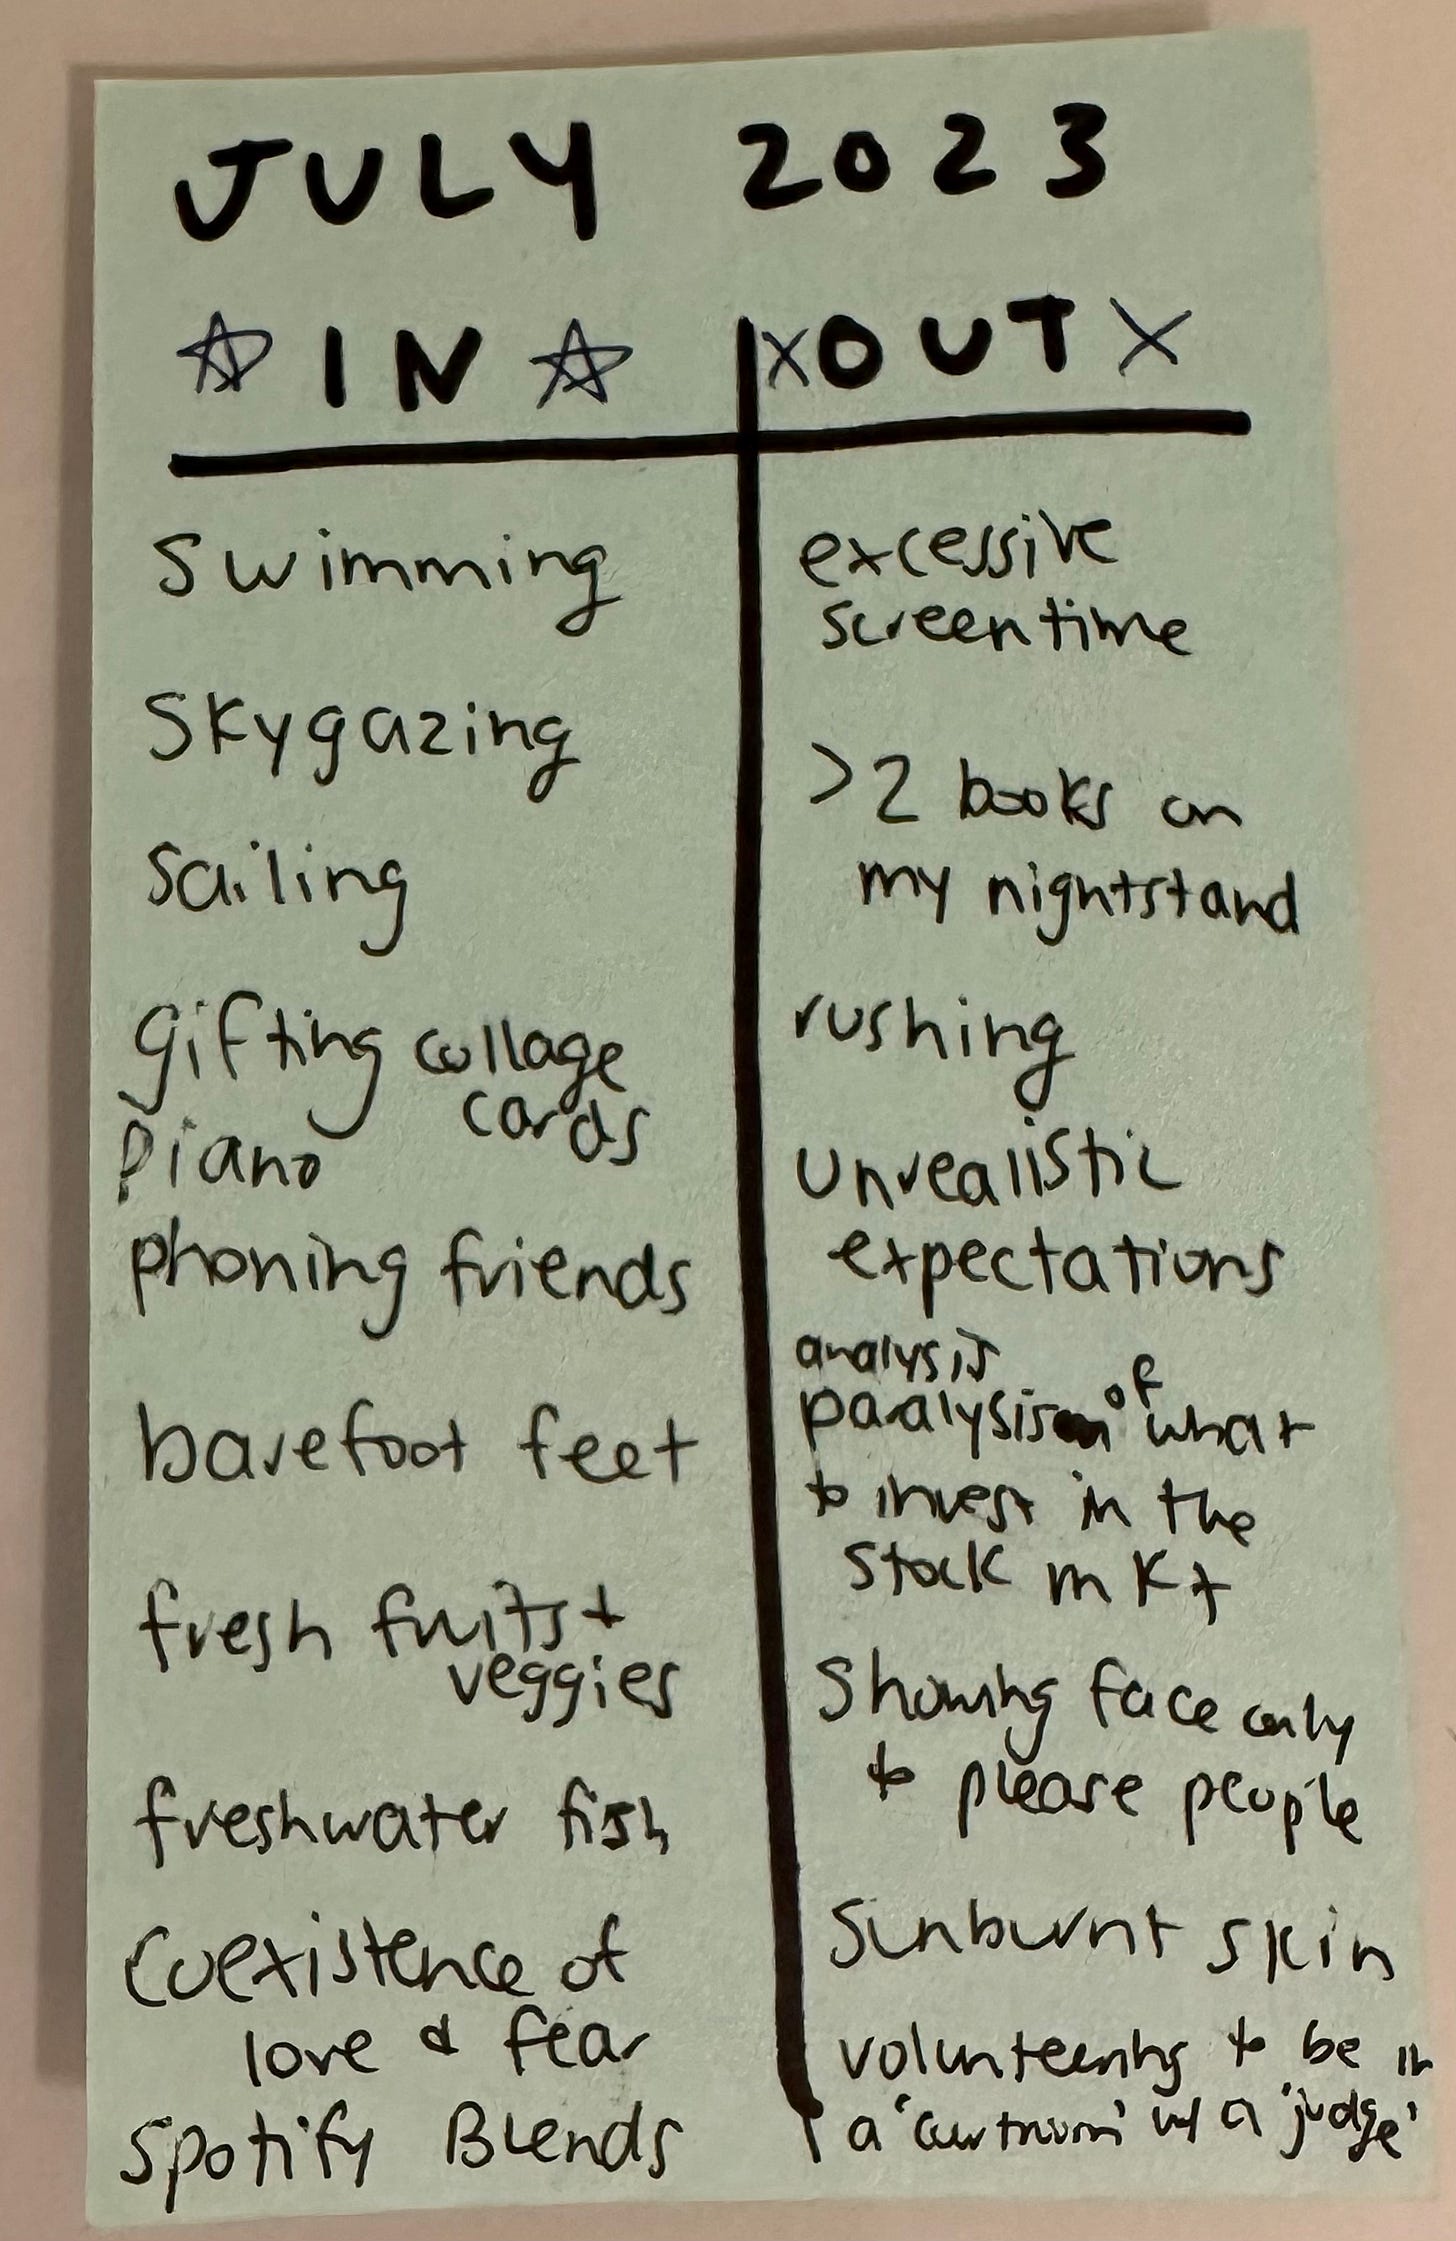 JULY 2023
IN
OUT
swimming
skygazing
sailing
gifting collage
cards
piano
phoning friends
barefoot feet
fresh fruits +
veggies
freshwater fish
coexistence of
love & fear
Spotify Blends
excessive
screentime
>2 books on
my nightstand
rushing
unrealistic
expectations
analysis
paralysis of what
to invest in the
stock mkt
showing face only
to please people
sunburnt skin
volunteering to be in
a 'courtroom' w/ a 'judge'